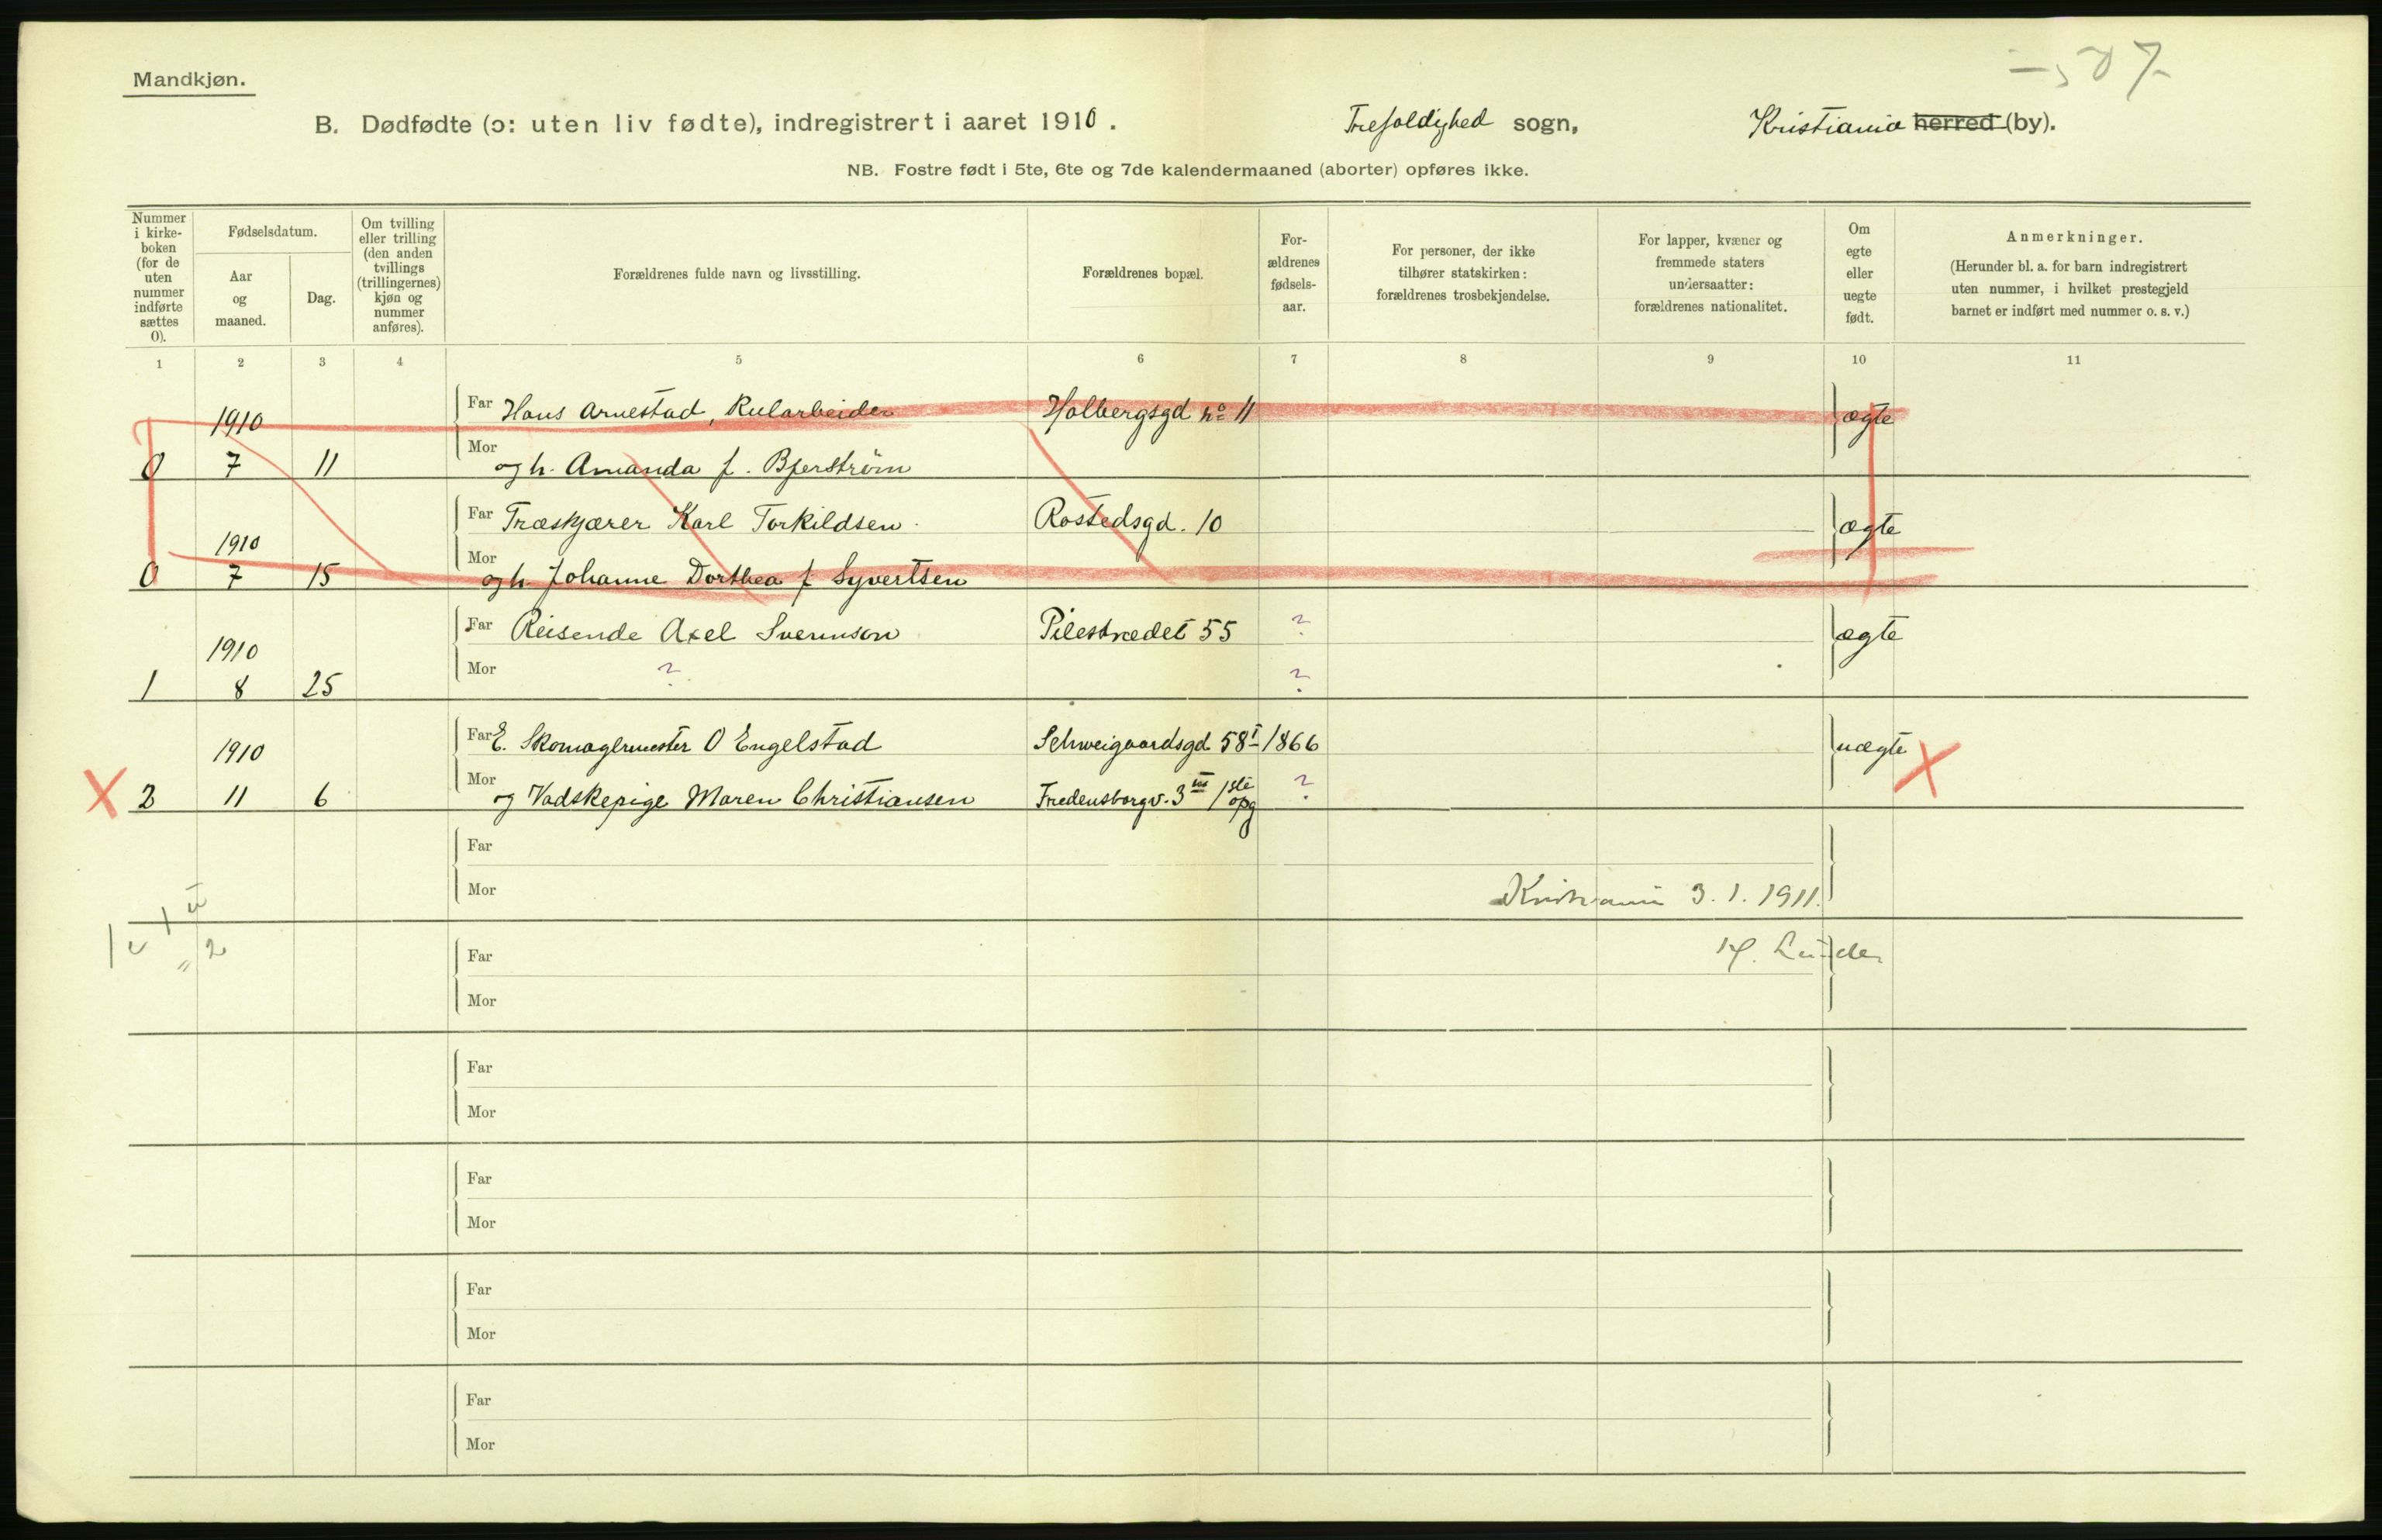 Mandkjøn.
B. Dødfødte (ɔ: uten liv fødte), indregistrert i aaret 1910. Trefoldighed sogn, Kristiania herred (by).
NB. Fostre født i 5te, 6te og 7de kalendermaaned (aborter) opføres ikke.
Nummer i kirke-boken (for de uten nummer indførte sættes 0).
Fødselsdatum.
Aar og maaned.
Dag.
Om tvilling eller trilling (den anden tvillings (trillingernes) kjøn og nummer anføres).
Forældrenes fulde navn og livsstilling.
Forældrenes bopæl.
For-ældrenes fødsels-aar.
For personer, der ikke tilhører statskirken: forældrenes trosbekjendelse.
For lapper, kvæner og fremmede staters undersaatter: forældrenes nationalitet.
Om egte eller uegte født.
Anmerkninger.
(Herunder bl. a. for barn indregistrert uten nummer, i hvilket prestegjeld barnet er indført med nummer o. s. v.)
1 2 3 4 5 6 7 8 9 10 11
1910 Far Hans Arnestad, Kularbeider Holbergsgd no 11 ægte
0 7 11 Mor og h. Amanda f. Bjerström
1910 Far Træskjærer Karl Torkildsen. Rostedsgd. 10 ægte
0 7 15 Mor og h. Johanne Dorthea f Syvertsen
1910 Far Reisende Axel Svennson Pilestrædet 55 ? ægte
1 8 25 Mor ? ?
1910 Far E. Skomagermester O Engelstad Schweigaardsgd 58 I 1866 uægte
X 2 11 6 Mor og Vadskepige Maren Christiansen Fredensborgv. 3 III 1ste opg ? X
Far
Mor Kristiania 3. 1. 1911.
Far H. Lunde
Mor
Far
Mor
Far
Mor
Far
Mor
Far
Mor